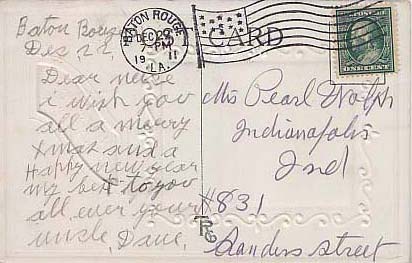 Baton Rouge
Dec, 22,
Dear neice
i wish you
all a merry
Xmas and a
Happy new year
my best to you
all ever your
uncle, Dave,
BATON ROUGE
DEC 22
7-PM
19 11
LA.
CARD
ONE CENT
Mis Pearl
Indianapolis
Ind
#831
Sanders street